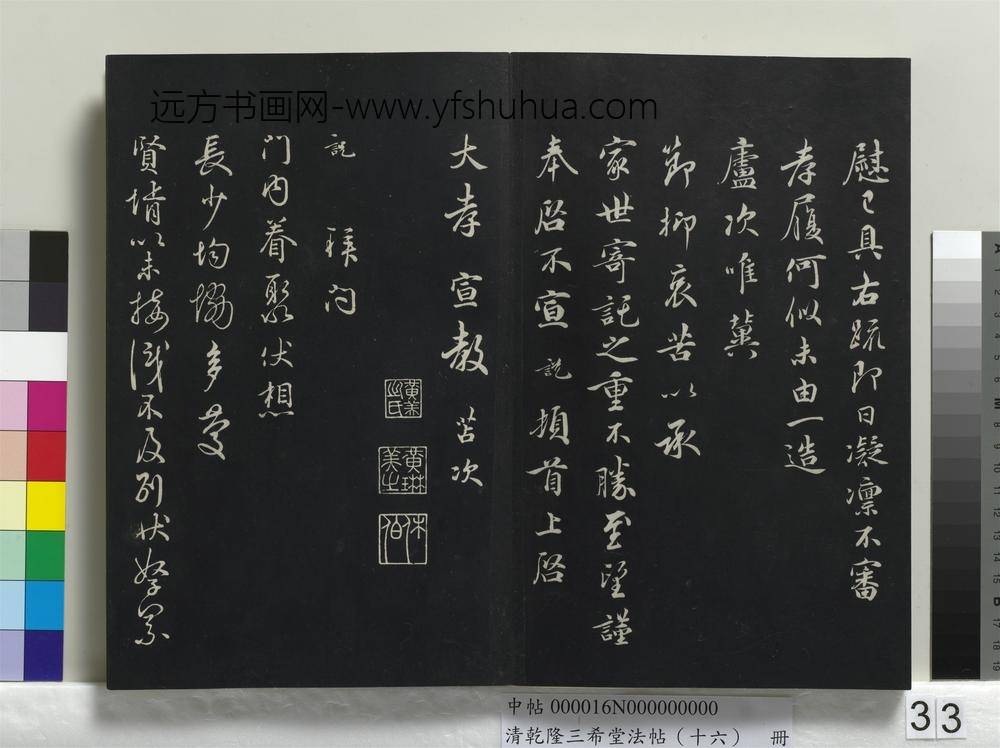 远方书画网-www.yfshuhua.com
慰已具右疏即日凝凛不審
孝履何似未由一造
廬次唯冀
節抑哀苦以承
家世寄託之重不勝至望謹
奉啓不宣 說 頓首上啓
大孝 宣教 苫次
說 拜问
門内眷聚伏想
長少均協多慶
賢壻以未接識不及别状
黄琳
美之
休伯
中帖 000016N000000000
清乾隆三希堂法帖（十六） 冊
33